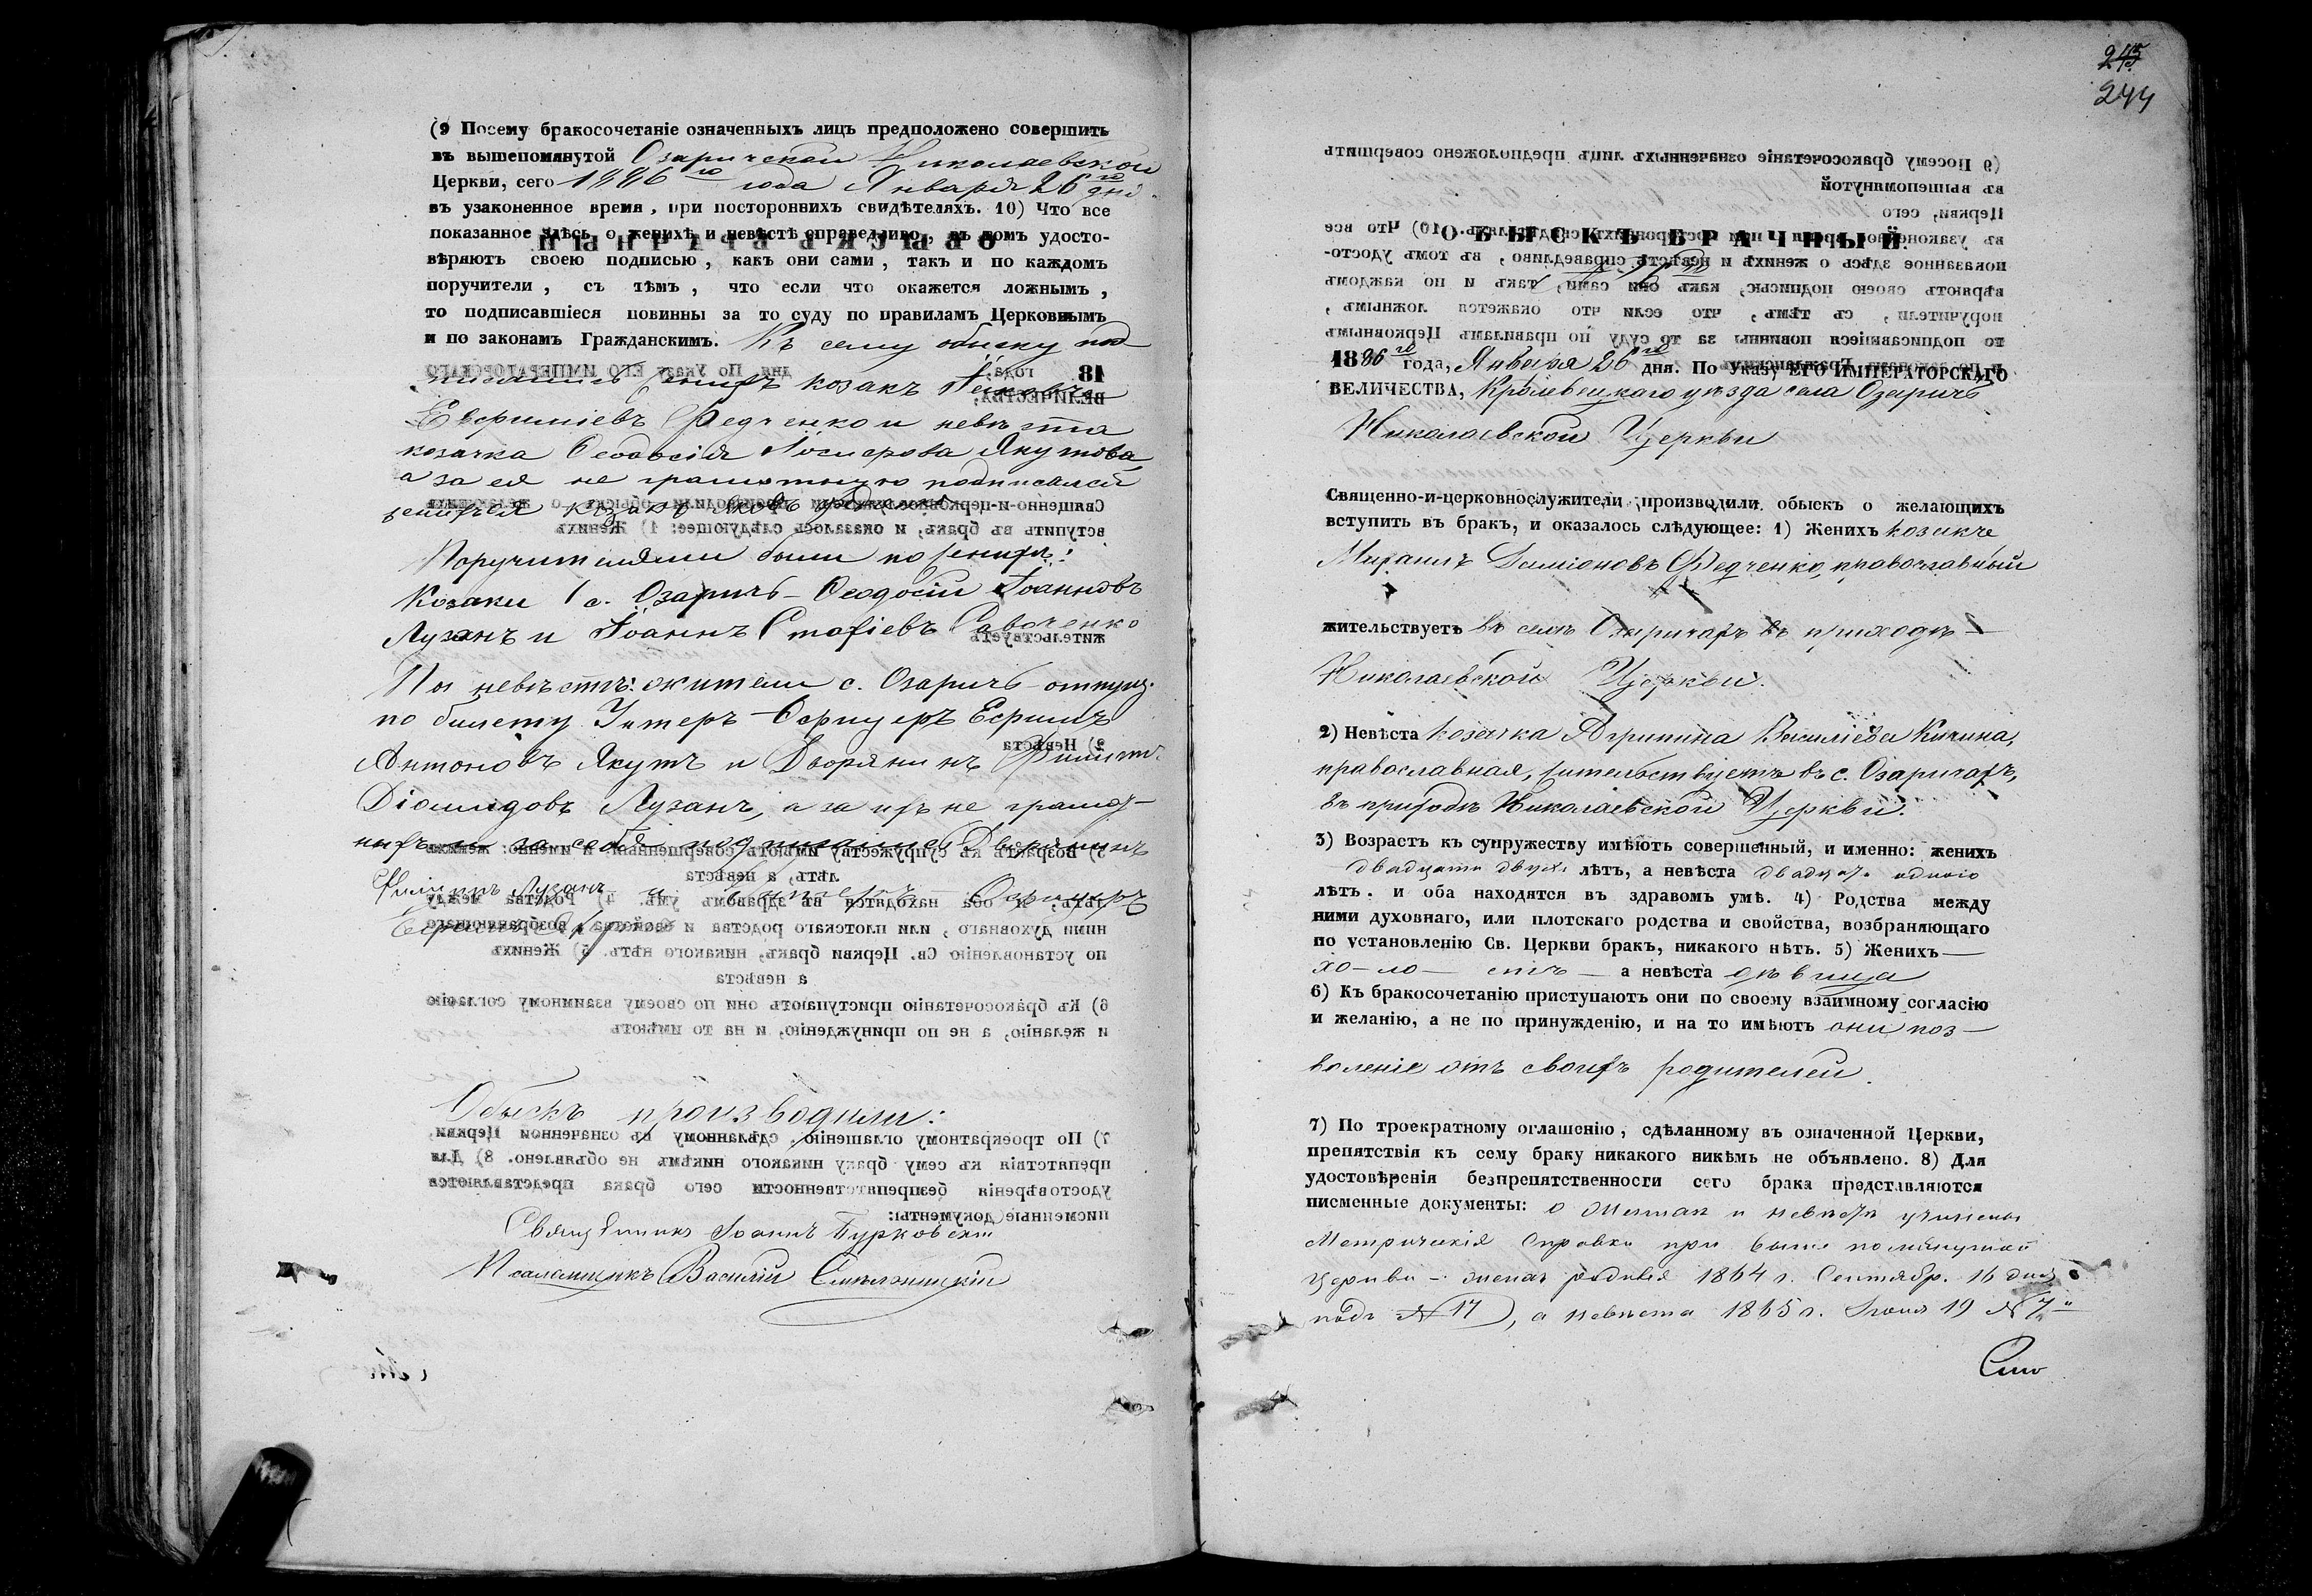 (9 Посему бракосочетаніе означенныхъ лицъ предположено совершить
въ вышепомянутой Озаричской Николаевской
Церкви, сего 1886 го года Января 26 го дня
въ узаконенное время, при постороннихъ свидѣтеляхъ. 10) Что все
показанное здѣсь о женихѣ и невѣстѣ справедливо, въ томъ удосто-
вѣряютъ своею подписью, какъ они сами, такъ и по каждомъ
поручители, съ тѣмъ, что если что окажется ложнымъ,
то подписавшіеся повинны за то суду по правиламъ Церковнымъ
и по законамъ Гражданскимъ. Къ сему обыску под-
писались женихъ козакъ
Евфиміевъ Федченко и невѣста
козачка Ѳеодосія Якутова
а за ея не грамотную подписался
козакъ
Поручителями были по женихѣ:
Козаки с. Озаричъ - Ѳеодосій Іоанновъ
Лузанъ и Іоаннъ Савоченко
По невѣстѣ: жители с. Озаричъ - отпущ.
по билету Унтеръ-Офицеръ Ефимъ
Антоновъ Якутъ и Дворянинъ Филиппъ
Діомидовъ Лузанъ, а за ихъ не грамот-
ныхъ и за себя подписался Дворянинъ
Филиппъ Лузанъ и Унтеръ-Офицеръ
Ефимъ Якутъ
Обыскъ производили:
Священникъ Іоаннъ Бурковскій
Псаломщикъ Василій
245
244
ОБЫСКЪ БРАЧНЫЙ.
1886 го года, Января 26 го дня. По Указу ЕГО ИМПЕРАТОРСКАГО
ВЕЛИЧЕСТВА, Кролевецкаго уѣзда села Озаричъ
Николаевской Церкви
Священно-и-церковнослужители производили обыскъ о желающихъ
вступить въ бракъ, и оказалось слѣдующее: 1) Женихъ козакъ
Михаилъ Даміоновъ Федченко, православный
жительствуетъ въ селѣ Озаричахъ въ приходѣ —
Николаевской Церкви.
2) Невѣста козачка Агрипина Василіева Кичина,
православная, жительствуетъ въ с. Озаричахъ,
въ приходѣ Николаевской Церкви.
3) Возрастъ къ супружеству имѣютъ совершенный, и именно: женихъ
двадцати двухъ лѣтъ, а невѣста двадцати одного
лѣтъ. и оба находятся въ здравомъ умѣ. 4) Родства между
ними духовнаго, или плотскаго родства и свойства, возбраняющаго
по установленію Св. Церкви бракъ, никакого нѣтъ. 5) Женихъ —
хо-ло — стъ — а невѣста дѣвица
6) Къ бракосочетанію приступаютъ они по своему взаимному согласію
и желанію, а не по принужденію, и на то имѣютъ они поз-
воленіе отъ своихъ родителей.
7) По троекратному оглашенію, сдѣланному въ означенной Церкви,
препятствія къ сему браку никакого никѣмъ не объявлено. 8) Для
удостовѣренія безпрепятственности сего брака представляются
писменные документы: о женихѣ и невѣстѣ учинены
Метрическія справки при выше помянутой
Церкви - женихъ родился 1864 г. Сентябр. 16 дня
подъ № 17, а невѣста 1865 г. Іюня 19 № 7